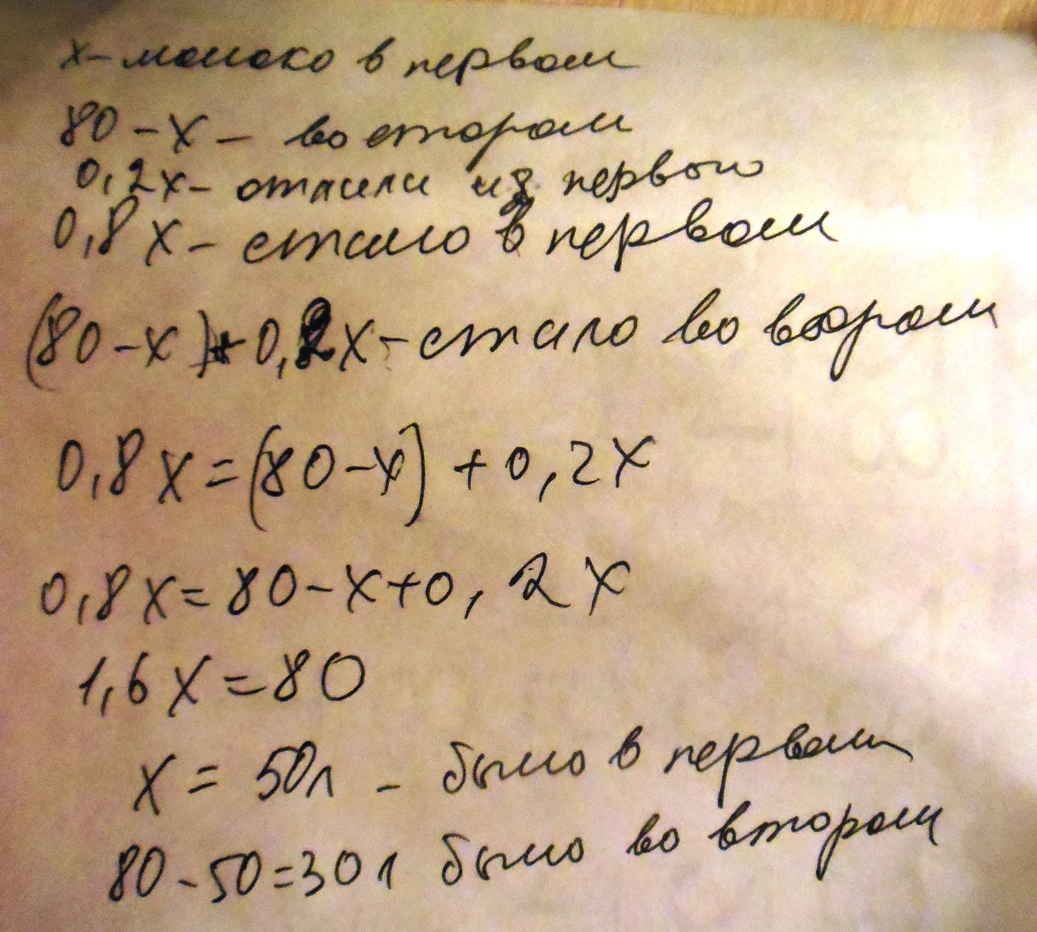 х - молоко в первом
80 - х - во втором
0,2х - отлили из первого
0,8х - стало в первом
(80 - х) + 0,2х - стало во втором
0,8х = (80 - х) + 0,2х
0,8х = 80 - х + 0,2х
1,6х = 80
х = 50л - было в первом
80 - 50 = 30л было во втором